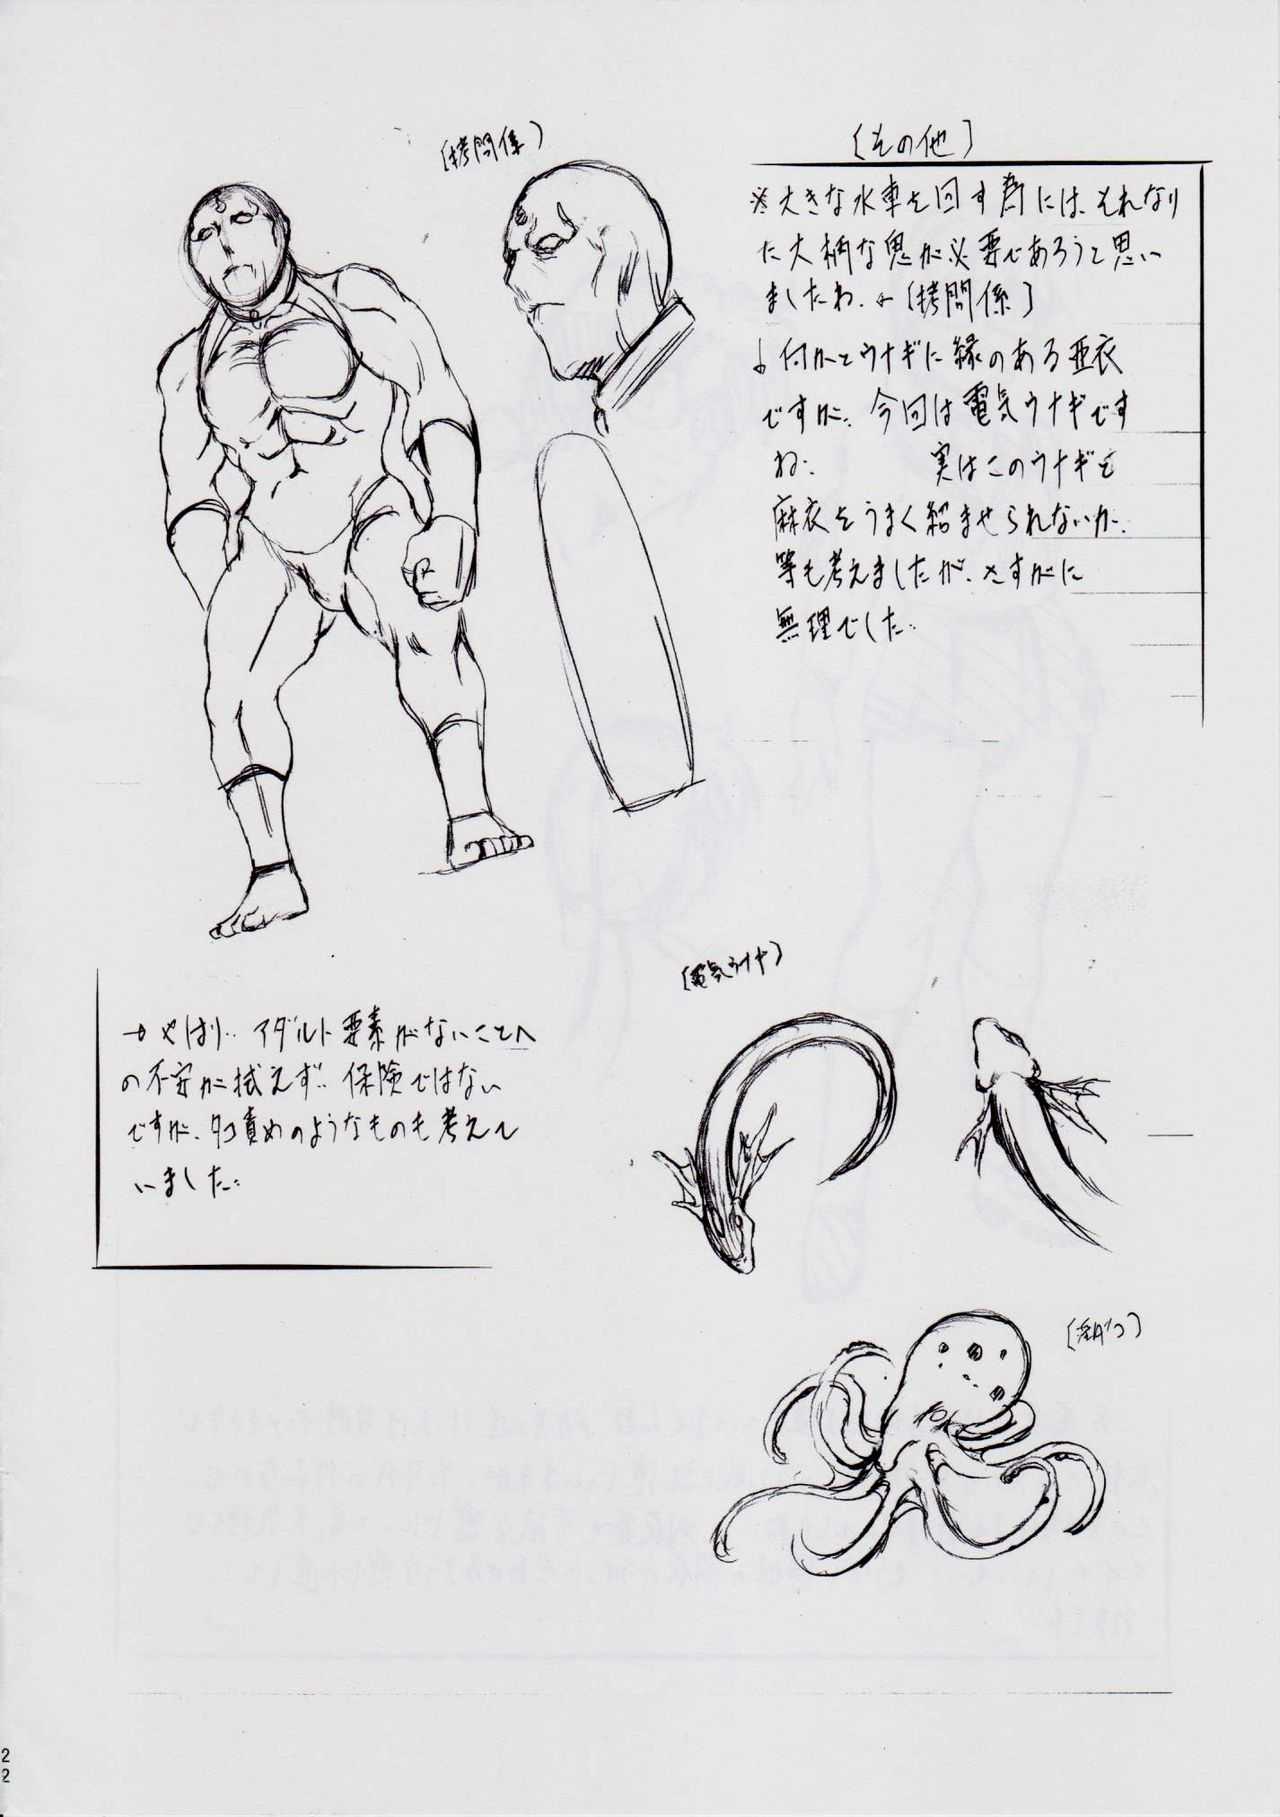 〔拷問係〕
〔その他〕
※大きな水車を回す為には、それなり
た大柄な鬼が必要であろうと思い
ましたわ、←〔拷問係〕
↓付かとウナギに縁のある亜衣
ですが‥今回は電気ウナギです
ね‥ 実はこのウナギを
麻衣をうまく絡ませられないか、
等も考えましたが、さすがに
無理でした‥
→やはり‥アダルト要素がないことへ
の不安が拭えず‥保険ではない
ですが、タコ責めのようなものも考えて
いました‥
〔電気ウナギ〕
〔淫ダコ〕
22